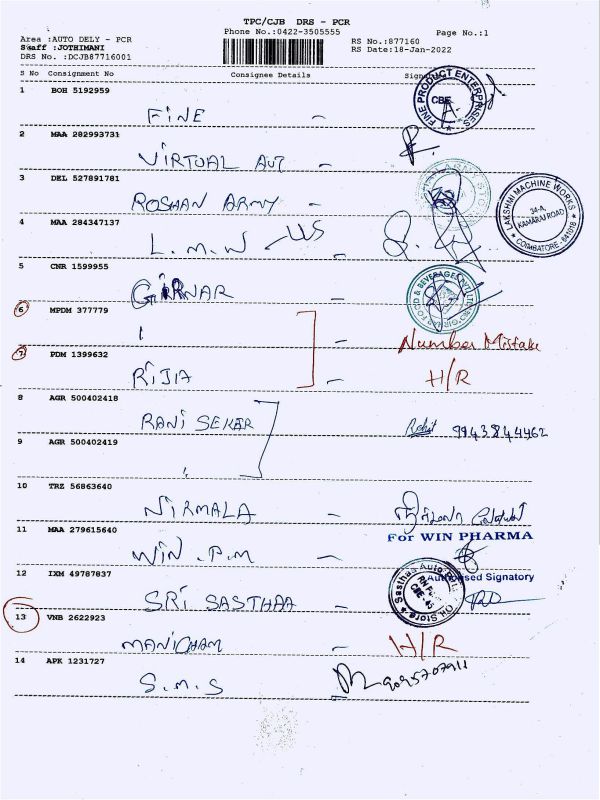 TPC/CJB DRS - PCR
Phone No.:0422-3505555 Page No.:1
Area :AUTO DELY - PCR RS No.:877160
Staff :JOTHIMANI RS Date:18-Jan-2022
DRS No. :DCJB87716001
S No Consignment No Consignee Details Sign
1 BOH 5192959
FINE
FINE PRODUCT ENTERPRISES CBE
2 MAA 282993731
VIRTUAL AUT
3 DEL 527891781
ROSHAN ARMY
4 MAA 284347137
L.M.W
LAKSHMI MACHINE WORKS
34-A,
KAMARAJ ROAD
COIMBATORE - 641018
5 CNR 1599955
GIRNAR
FOOD & BEVERAGES
6 MPDM 377779
Number Mistake
7 PDM 1399632
RIJIA H/R
8 AGR 500402418
RANI SEKAR Rohit 9943844462
9 AGR 500402419
10 TRZ 56863640
NIRMALA
11 MAA 279615640 For WIN PHARMA
WIN .P.M
12 IXM 49787837 Authorised Signatory
SRI SASTHAA
Sasthaa Auto
Oil Store
13 VNB 2622923
MANICHAM H/R
14 APK 1231727
S.M.S 9095707911